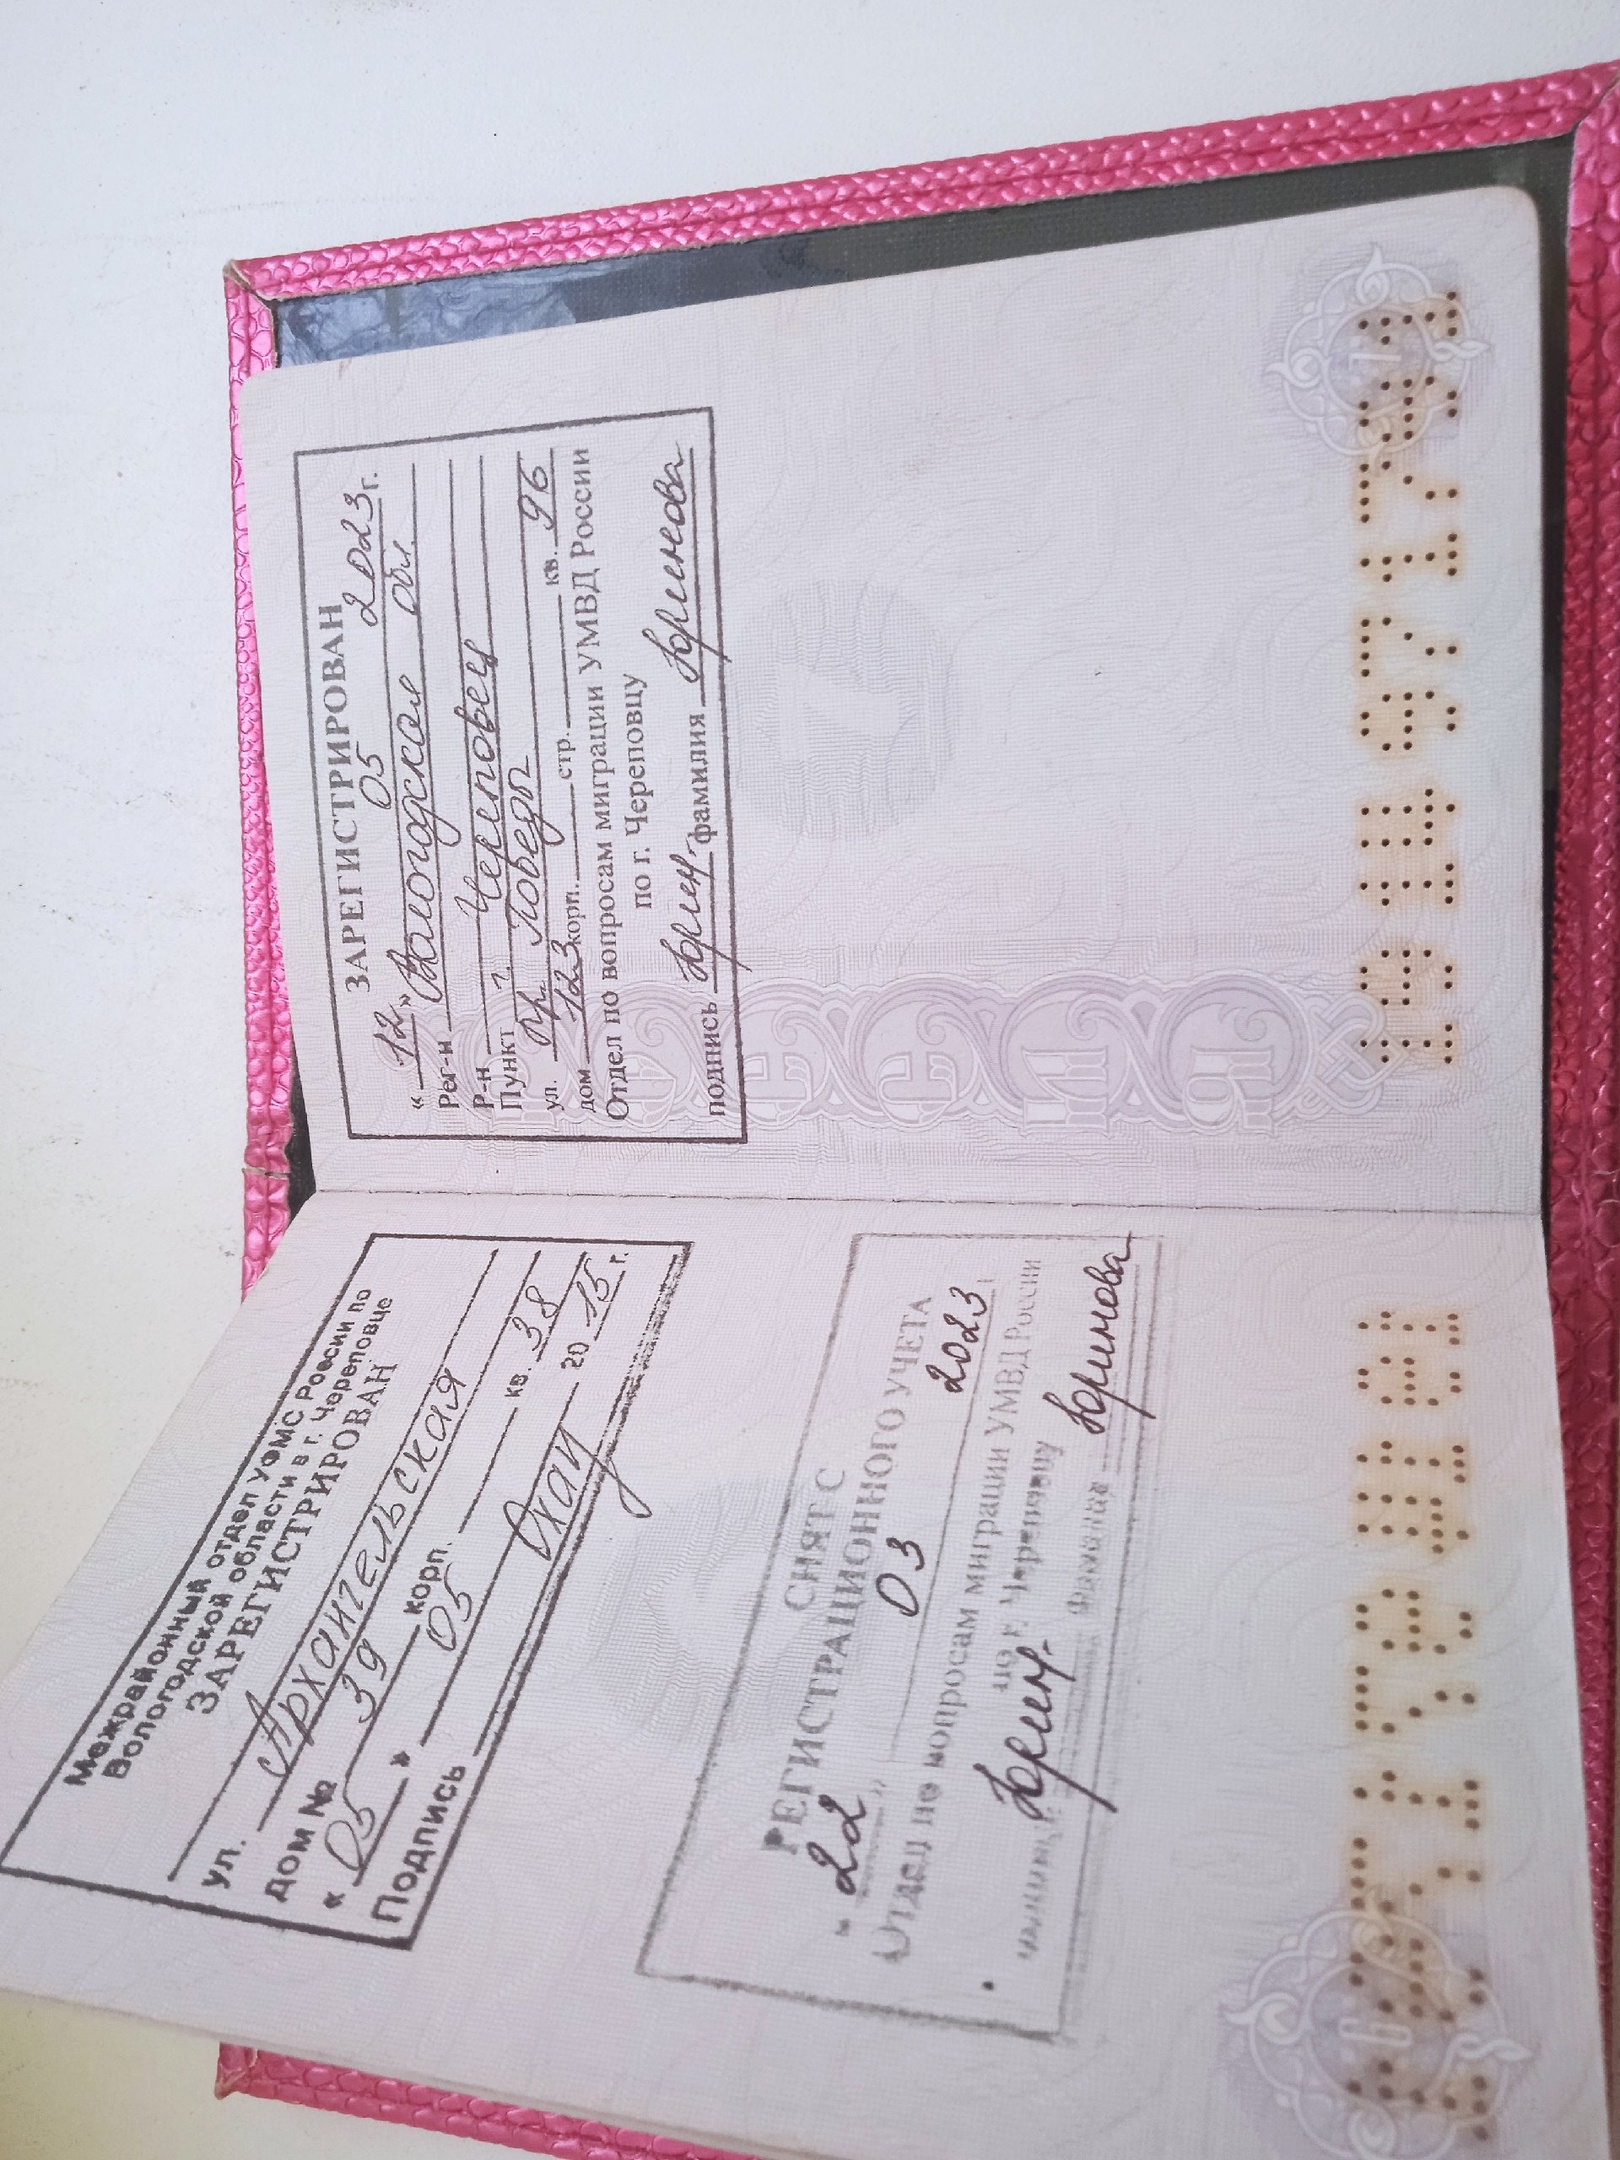 Межрайонный отдел УФМС России по
Вологодской области в г. Череповце
ЗАРЕГИСТРИРОВАН
ул. Архангельская
дом № 39 корп. кв. 38
« 05 » 05 20 15 г.
Подпись
СНЯТ С
РЕГИСТРАЦИОННОГО УЧЕТА
" 22 " 03 2023
Отдел по вопросам миграции УМВД России
по г. Череповцу
фамилия
ЗАРЕГИСТРИРОВАН
« 12 » 05 2023 г.
Рег-н Вологодская обл.
Р-н
Пункт г. Череповец
ул. пр. Победы
дом 123 корп. стр. кв. 96
Отдел по вопросам миграции УМВД России
по г. Череповцу
подпись фамилия